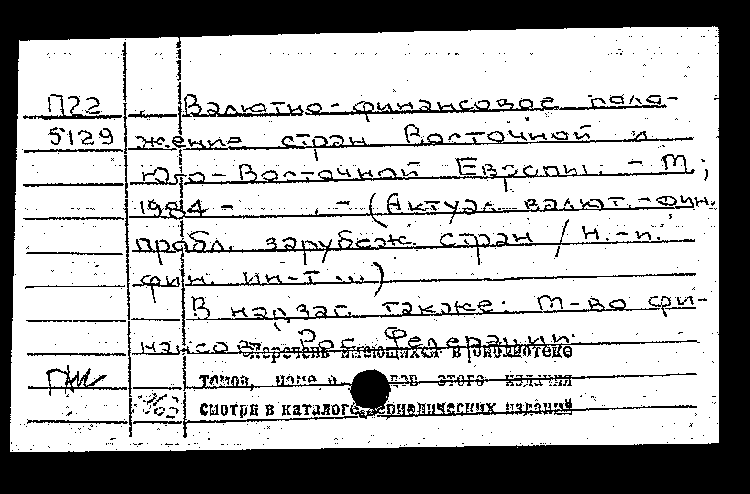 П22 Валютно-финансовое поло-
5129 жение стран Восточной и
Юго-Восточной Европы. - М.;
1984 - . - (Актуал. валют.-фин.
пробл. зарубеж. стран / Н.-и.
фин. ин-т ...)
В надзаг. также: М-во фи-
нансов Рос. Федерации.
Перечень имеющихся в библиотеке
томов, этого издания
смотри в каталоге периодических изданий